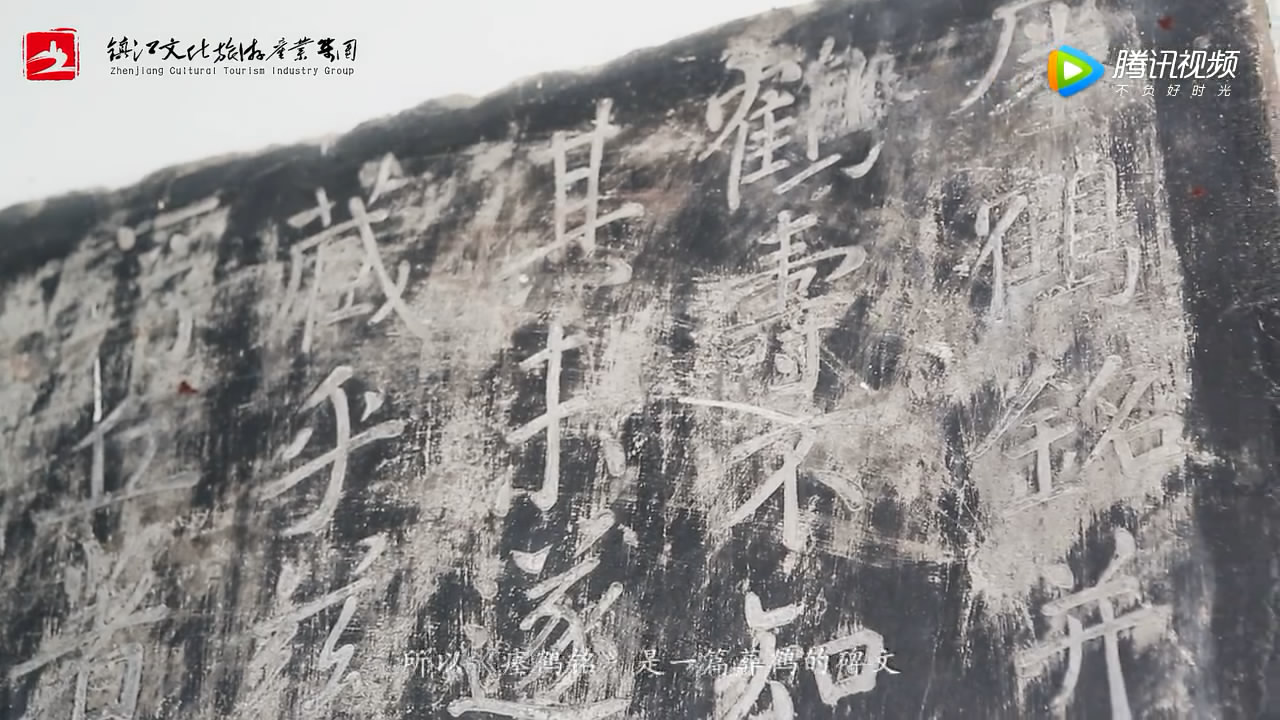 镇江文化旅游產業集团
Zhenjiang Cultural Tourism Industry Group
腾讯视频
不负好时光
鶴銘并
鶴壽不知
其未遂
藏乎兹
所以《瘗鹤铭》是一篇葬鹤的碑文